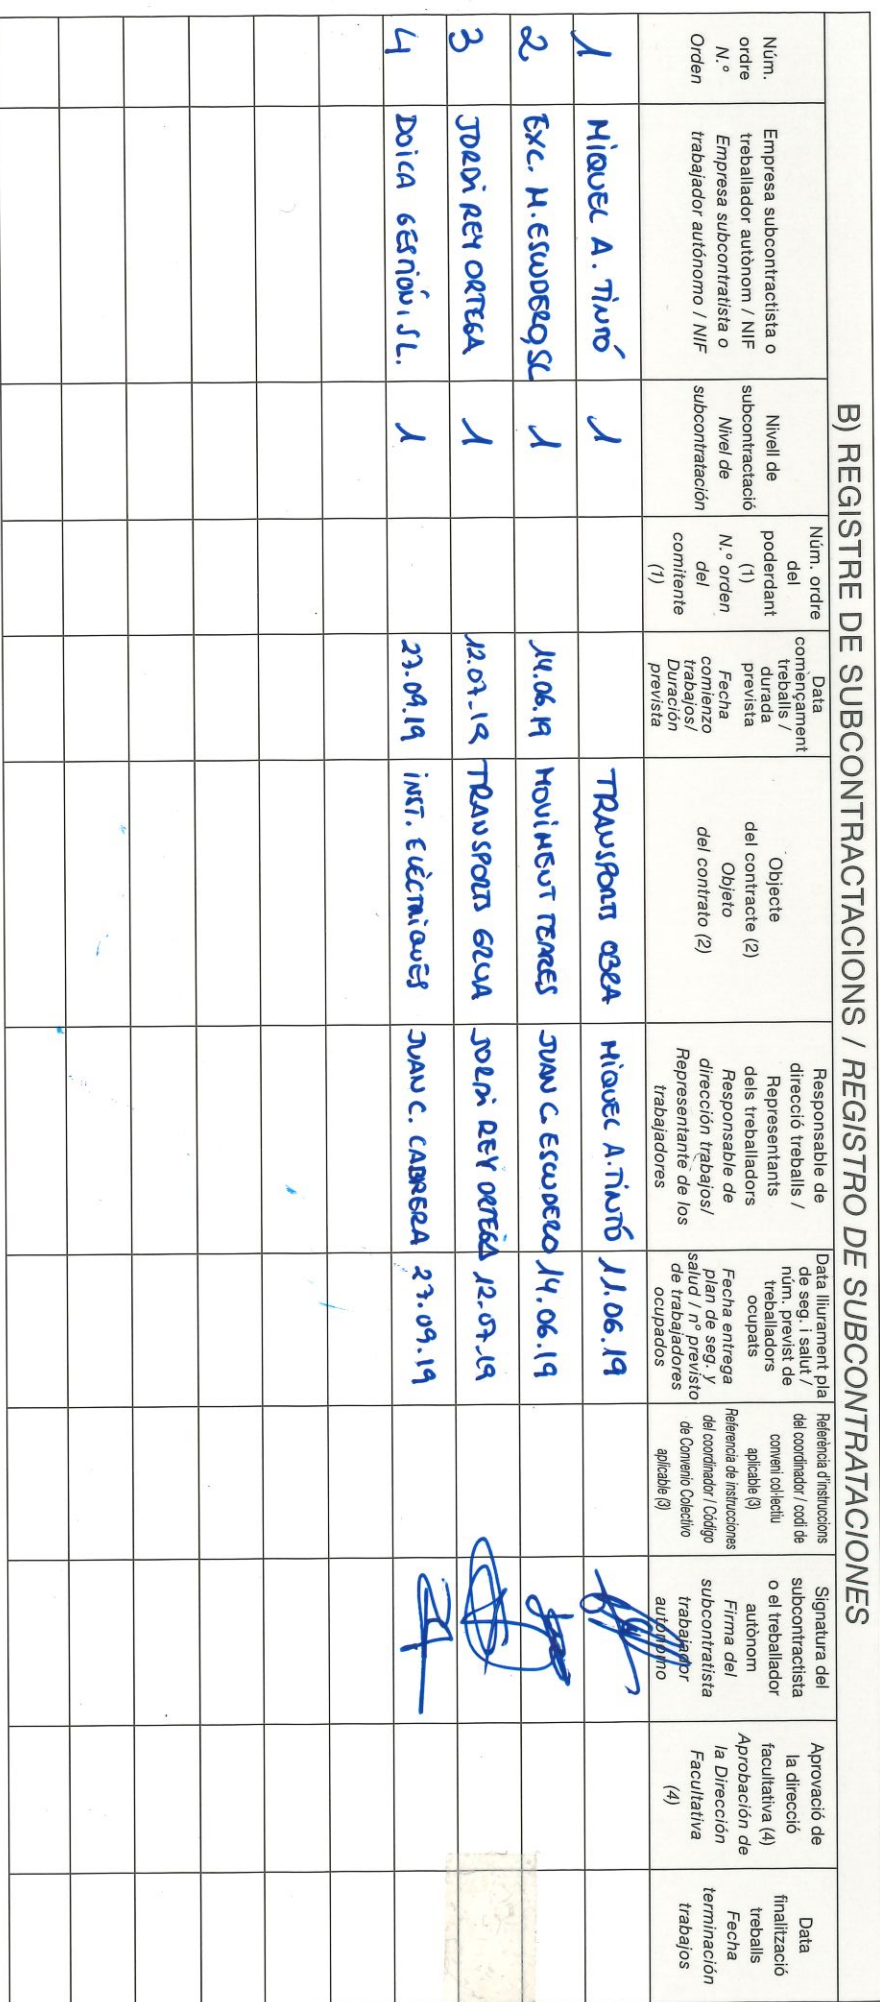 B) REGISTRE DE SUBCONTRACTACIONS / REGISTRO DE SUBCONTRATACIONES
Núm.
ordre
N.º
Orden
Empresa subcontractista o
treballador autònom / NIF
Empresa subcontratista o
trabajador autónomo / NIF
Nivell de
subcontractació
Nivel de
subcontratación
Núm. ordre
del
poderdant
(1)
N.º orden
del
comitente
(1)
Data
començament
treballs /
durada
prevista
Fecha
comienzo
trabajos/
Duración
prevista
Objecte
del contracte (2)
Objeto
del contrato (2)
Responsable de
direcció treballs /
Representants
dels treballadors
Responsable de
dirección trabajos/
Representante de los
trabajadores
Data lliurament pla
de seg. i salut /
núm. previst de
treballadors
ocupats
Fecha entrega
plan de seg. y
salud / nº previsto
de trabajadores
ocupados
Referència d'instruccions
del coordinador / codi de
conveni col·lectiu
aplicable (3)
Referencia de instrucciones
del coordinador / Código
de Convenio Colectivo
aplicable (3)
Signatura del
subcontractista
o el treballador
autònom
Firma del
subcontratista
trabajador
autónomo
Aprovació de
la direcció
facultativa (4)
Aprobación de
la Dirección
Facultativa
(4)
Data
finalització
treballs
Fecha
terminación
trabajos
1 MIQUEL A. TINTÓ 1 TRANSPORTS OBRA MIQUEL A. TINTÓ 11.06.19
2 EXC. M. ESCUDERO, SC 1 14.06.19 MOVIMENT TERRES JUAN C. ESCUDERO 14.06.19
3 JORDI REY ORTEGA 1 12.07.19 TRANSPORTS GRUA JORDI REY ORTEGA 12.07.19
4 DOICA GESTIÓN, S.L. 1 27.09.19 INST. ELÈCTRIQUES JUAN C. CABRERA 27.09.19